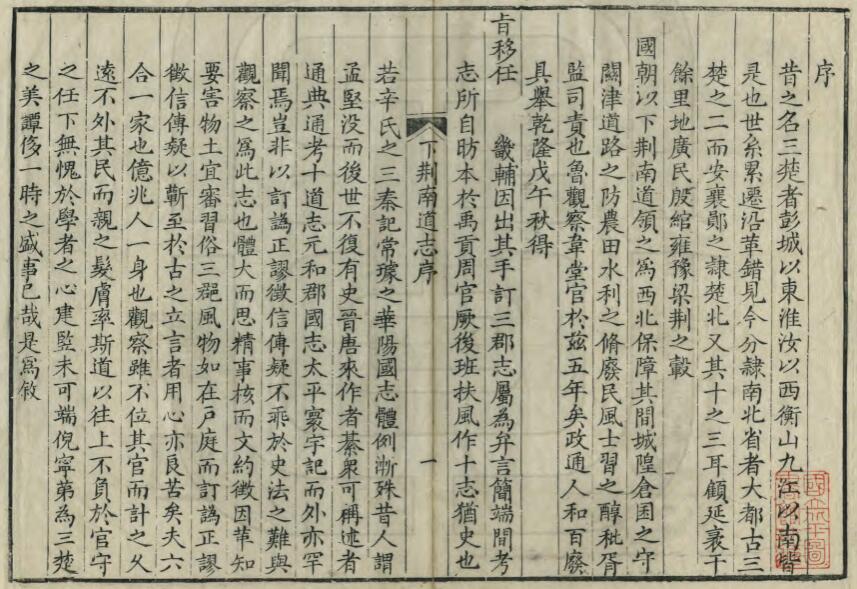 序
昔之名三楚者彭城以東淮汝以西衡山九江以南皆
是也世系累遷沿革錯見今分隷南北省者大都古三
楚之二而安襄鄖之隷楚北又其十之三耳顧延袤千
餘里地廣民殷綰雍豫梁荆之轂
國朝以下荆南道領之爲西北保障其間城隍倉囷之守
關津道路之防農田水利之脩廢民風士習之醇秕胥
監司責也魯觀察韋堂官於茲五年矣政通人和百廢
具舉乾隆戊午秋得
㫖移任 畿輔因出其手訂三郡志屬為弁言簡端間考
志所自昉本於禹貢周官厥後班扶風作十志猶史也
下荆南道志序
一
若辛氏之三秦記常璩之華陽國志體例漸殊昔人謂
孟堅没而後世不復有史晉唐來作者綦衆可稱述者
通典通考十道志元和郡國志太平寰宇記而外亦罕
聞焉豈非以訂譌正謬徵信傳疑不乖於史法之難與
觀察之爲此志也體大而思精事核而文約徵因革知
要害物土宜審習俗三郡風物如在戸庭而訂譌正謬
徵信傳疑以蘄至於古之立言者用心亦良苦矣夫六
合一家也億兆人一身也觀察雖不位其官而計之久
遠不外其民而親之髮膚率斯道以往上不負於官守
之任下無愧於學者之心建監未可端倪寧第為三楚
之美譚侈一時之盛事已哉是爲敘